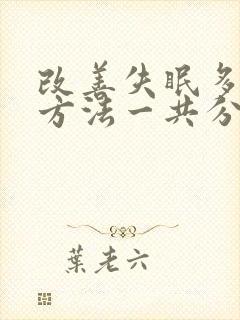 改善失眠多
方法一共分
葉老六